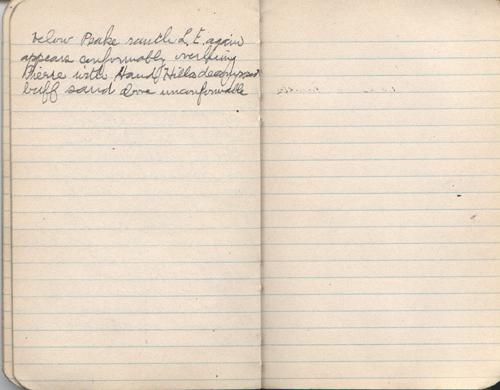 below Brake ranch L. E. again
appears conformably overlying
Pierre with Hand Hills decomposed
buff sand above unconformable